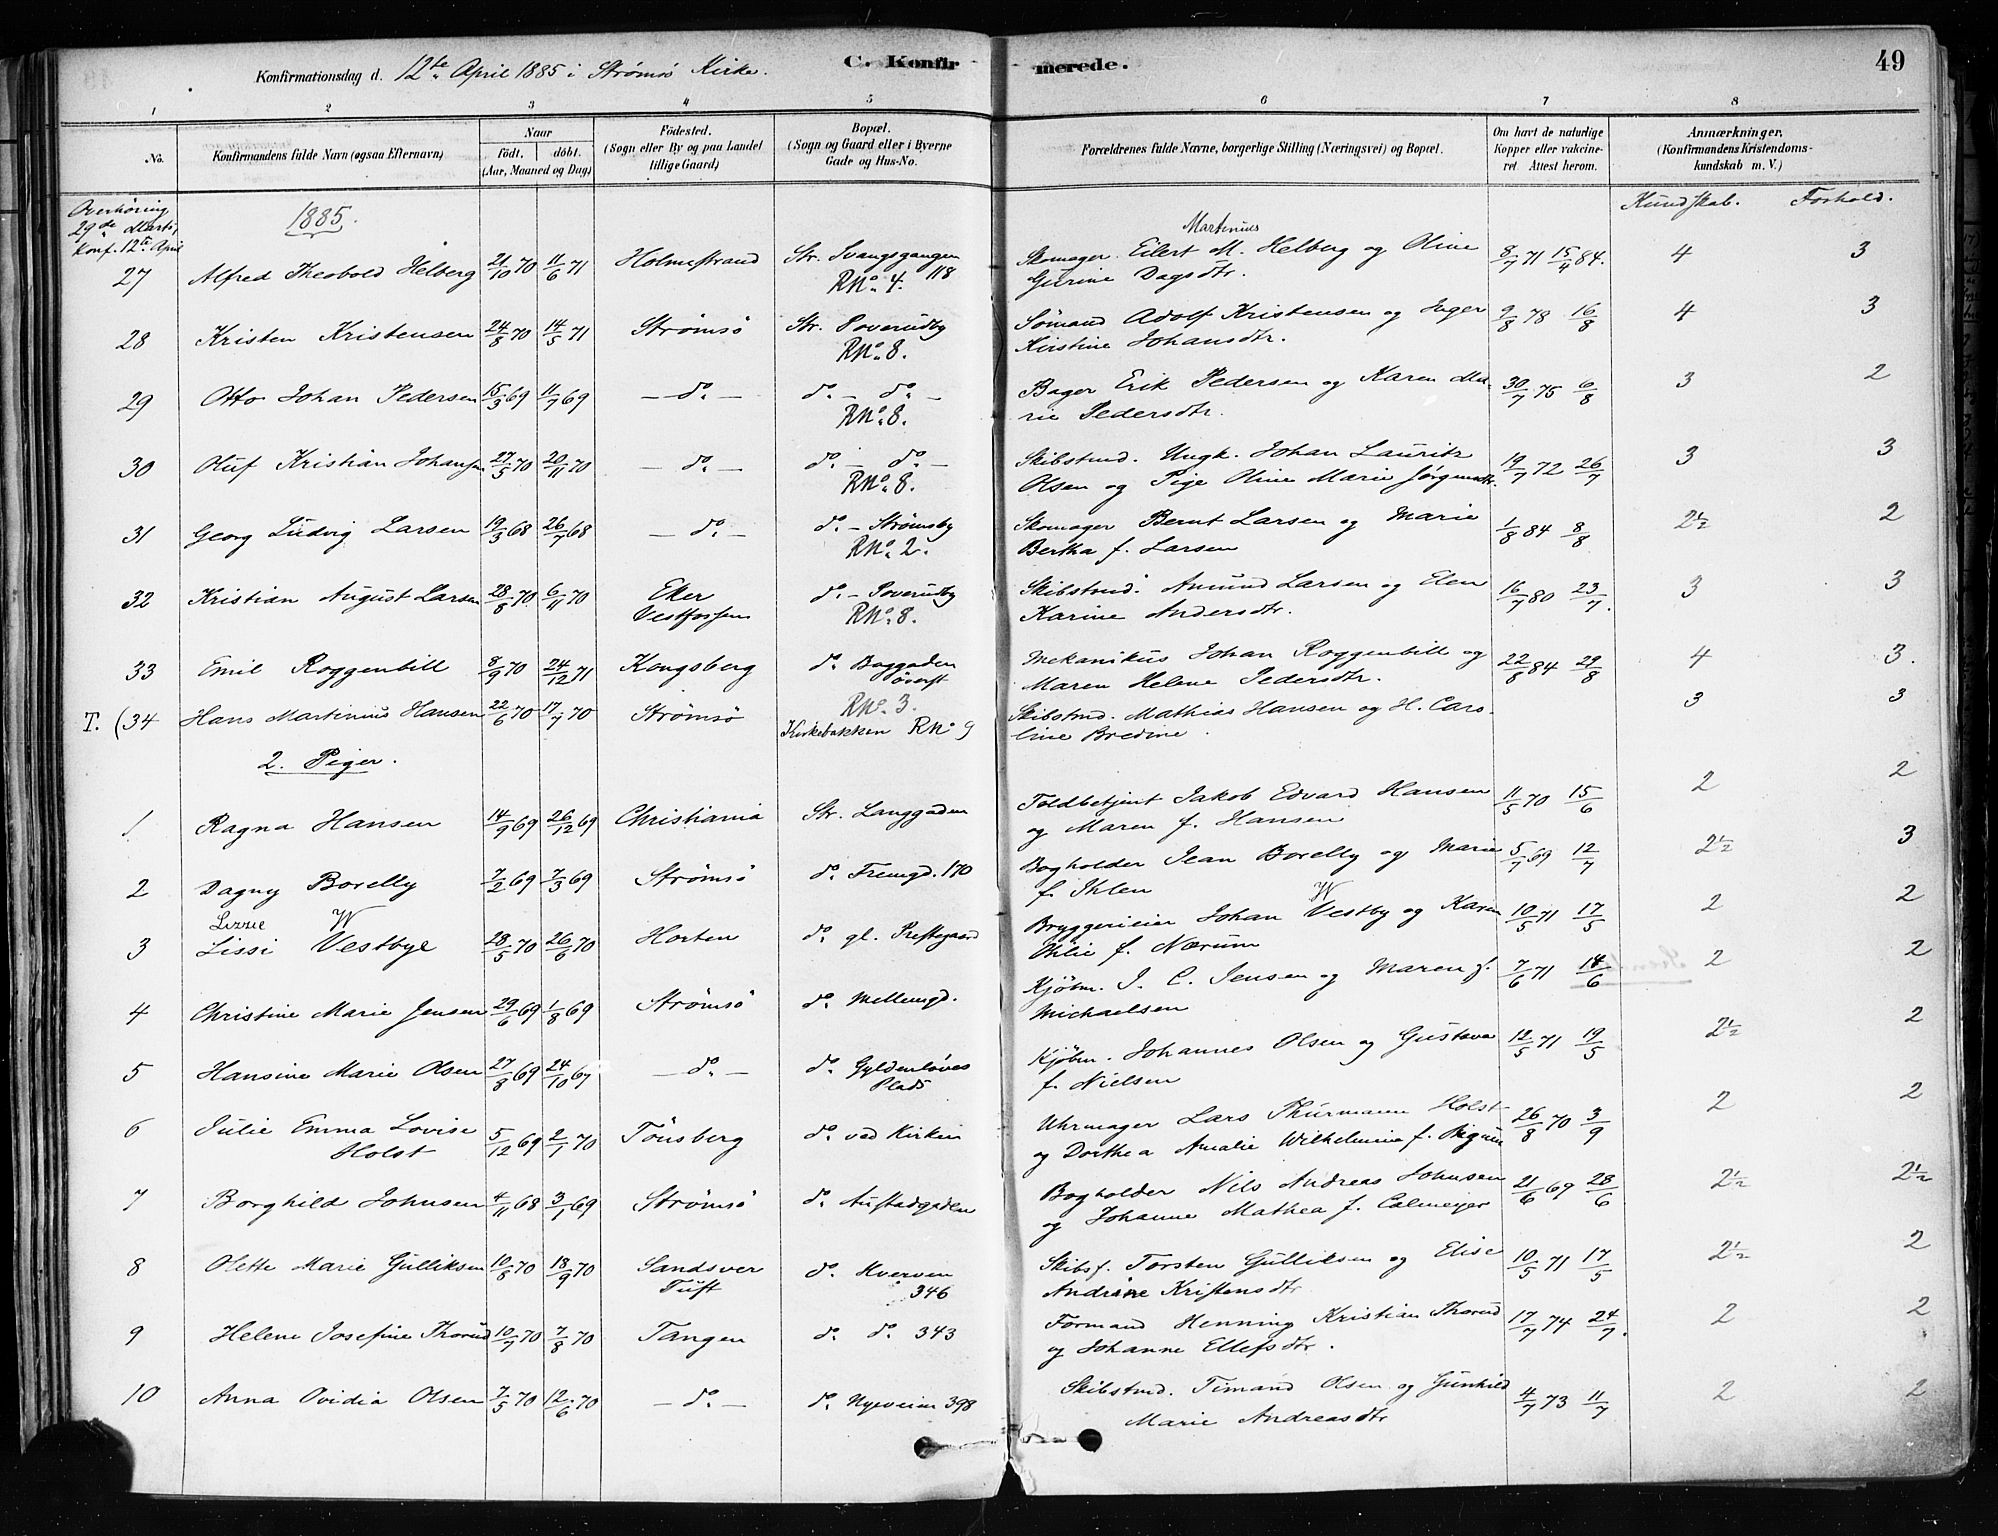 Konfirmationsdag d. 12te April 1885 i Strømsø Kirke.
C. Konfirmerede.
49
1 2 3 4 5 6 7 8
No.
Konfirmandens fulde Navn (ogsaa Efternavn)
Naar
født. døbt.
(Aar, Maaned og Dag)
Födested.
(Sogn eller By og paa Landet
tillige Gaard)
Bopæl.
(Sogn og Gaard eller i Byerne
Gade og Hus-No.
Forældrenes fulde Navne, borgerlige Stilling (Næringsvei) og Bopæl.
Om havt de naturlige
Kopper eller vakcine-
ret Attest herom.
Anmærkninger,
(Konfirmandens Kristendoms-
kundskab m. V.)
Kundskab. Forhold.
Overhöring
29de Marts,
Konf. 12te April
1885.
27 Alfred Theobold Helberg 21/10 70 11/6 71 Holmestrand Str. Svangsgangen 118 RNo. 4. Skomager Eilert M. Martinius Helberg og Oline Gurine Dagsdtr. 8/7 71 15/4 84. 4 3
28 Kristen Kristensen 24/8 70 14/5 71 Strømsö Str. Poverudby RNo. 8. Sømand Adolf Kristensen og Inger Kirstine Johansdtr. 9/8 78 16/8 4 3
29 Otto Johan Pedersen 15/3 69 11/7 69 — do — do — do — RNo. 8. Bager Erik Pedersen og Karen Marie Pedersdtr. 30/7 75 6/8 3 2
30 Oluf Kristian Johansen 27/5 70 20/11 70 — do — do — do — RNo. 8. Skibstmd. Ungk. Johan Lauritz Olsen og Pige Oline Marie Jörgensdtr. 19/7 72 26/7 3 3
31 Georg Ludvig Larsen 19/3 68 26/7 68 — do — do — Strømsby RNo. 2. Skomager Bernt Larsen og Marie Bertha f. Larsen 1/8 84 8/8 2½ 2
32 Kristian August Larsen 28/8 70 6/11 70 Eker Vestfossen do — Poverudby RNo. 8. Skibstmd. Amund Larsen og Elen Karine Andersdtr. 16/7 80 23/7. 3 3
33 Emil Roggenbill 8/9 70 24/12 71 Kongsberg do Baggaden överst RNo. 3. Mekanikus Johan Roggenbill og Maren Helene Pedersdtr. 22/8 84 29/8 4 3.
T. (34 Hans Martinius Hansen 22/6 70 17/7 70 Strømsö Kirkebakken RNo 9 Skibstmd. Mathias Hansen og H. Caroline Bredine. 3 3
2. Piger.
1. Ragna Hansen 14/9 69 26/12 69 Christiania Str. Langgaden Toldbetjent Jakob Edvard Hansen og Maren f. Hansen 11/5 70 15/6 2 2
2 Dagny Borelly 7/2 69 7/3 69 Strømsö do Fremgd. 170 Bogholder Jean Borelly og Marie f. Ihlen 5/7 69 12/7 2½ 3
3 Lissi Lizzie Vestbye W 28/5 70 26/6 70 Horten do gl. Prestegaard Bryggerieier Johan Vestby W og Karen Thilie f. Nærum 10/5 71 17/5 2 2
4 Christine Marie Jensen 29/6 69 1/8 69 Strømsö do Mellemgd. Kjøbm. J. C. Jensen og Maren f. Michaelsen 7/6 71 14/6 2 2
5 Hansine Marie Olsen 27/8 69 24/10 69 — do — do Gyldenløves Plads Kjøbm. Johannes Olsen og Gustava f. Nielsen 12/5 71 19/5 2½ 2
6 Julie Emma Lovise Holst 5/12 69 2/1 70 Tönsberg do ved Kirken Uhrmager Lars Thurmann Holst og Dorthea Amalie Wilhelmine f. 26/8 70 3/9 2 2
7 Borghild Johnsen 4/11 68 3/1 69 Strømsö do Austadgaden Bogholder Nils Andreas Johnsen og Johanne Mathea f. Calmeyer 21/6 69 28/6 2½ 2½
8 Olette Marie Gulliksen 10/8 70 18/9 70 Sandsver Tuft do Kverven 346 Skibsf. Torsten Gulliksen og Elise Andrine Kristensdtr 10/5 71 17/5 2½ 2
9 Helene Josefine Thorud 10/7 70 7/8 70 Tangen do do 343 Formand Henning Kristian Thorud og Johanne Ellefsdtr. 17/7 74 24/7. 2 2
10 Anna Ovidia Olsen 7/5 70 12/6 70 — do — do Nyeveien 398 Skibstmd. Timand Olsen og Gunhild Marie Andreasdtr 4/7 73 11/7 2 2